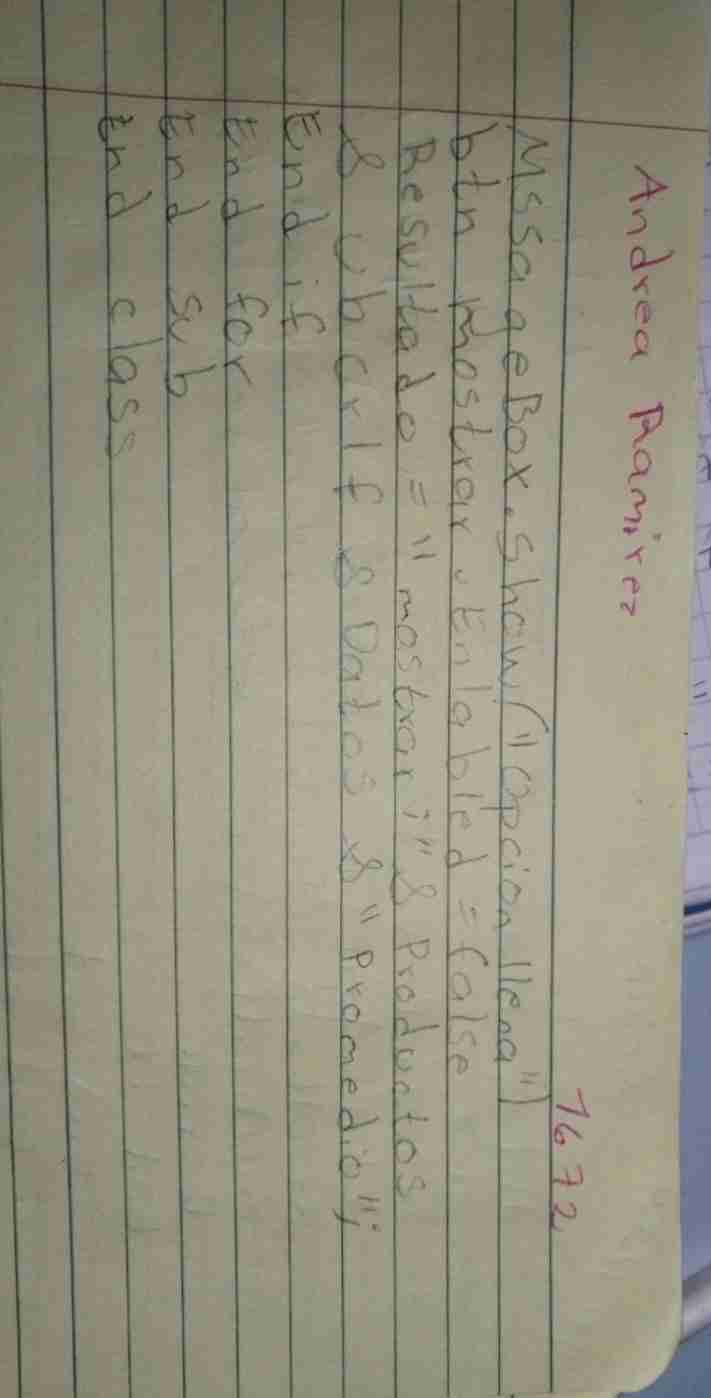 Andrea Ramirez 1672
MssageBox.show("Opcion llena")
btn mostrar.Enlabled = false
Resultado = "mostrar:" & Productos
& vbcrlf & Datos & "Promedio";
End if
End for
End sub
End class